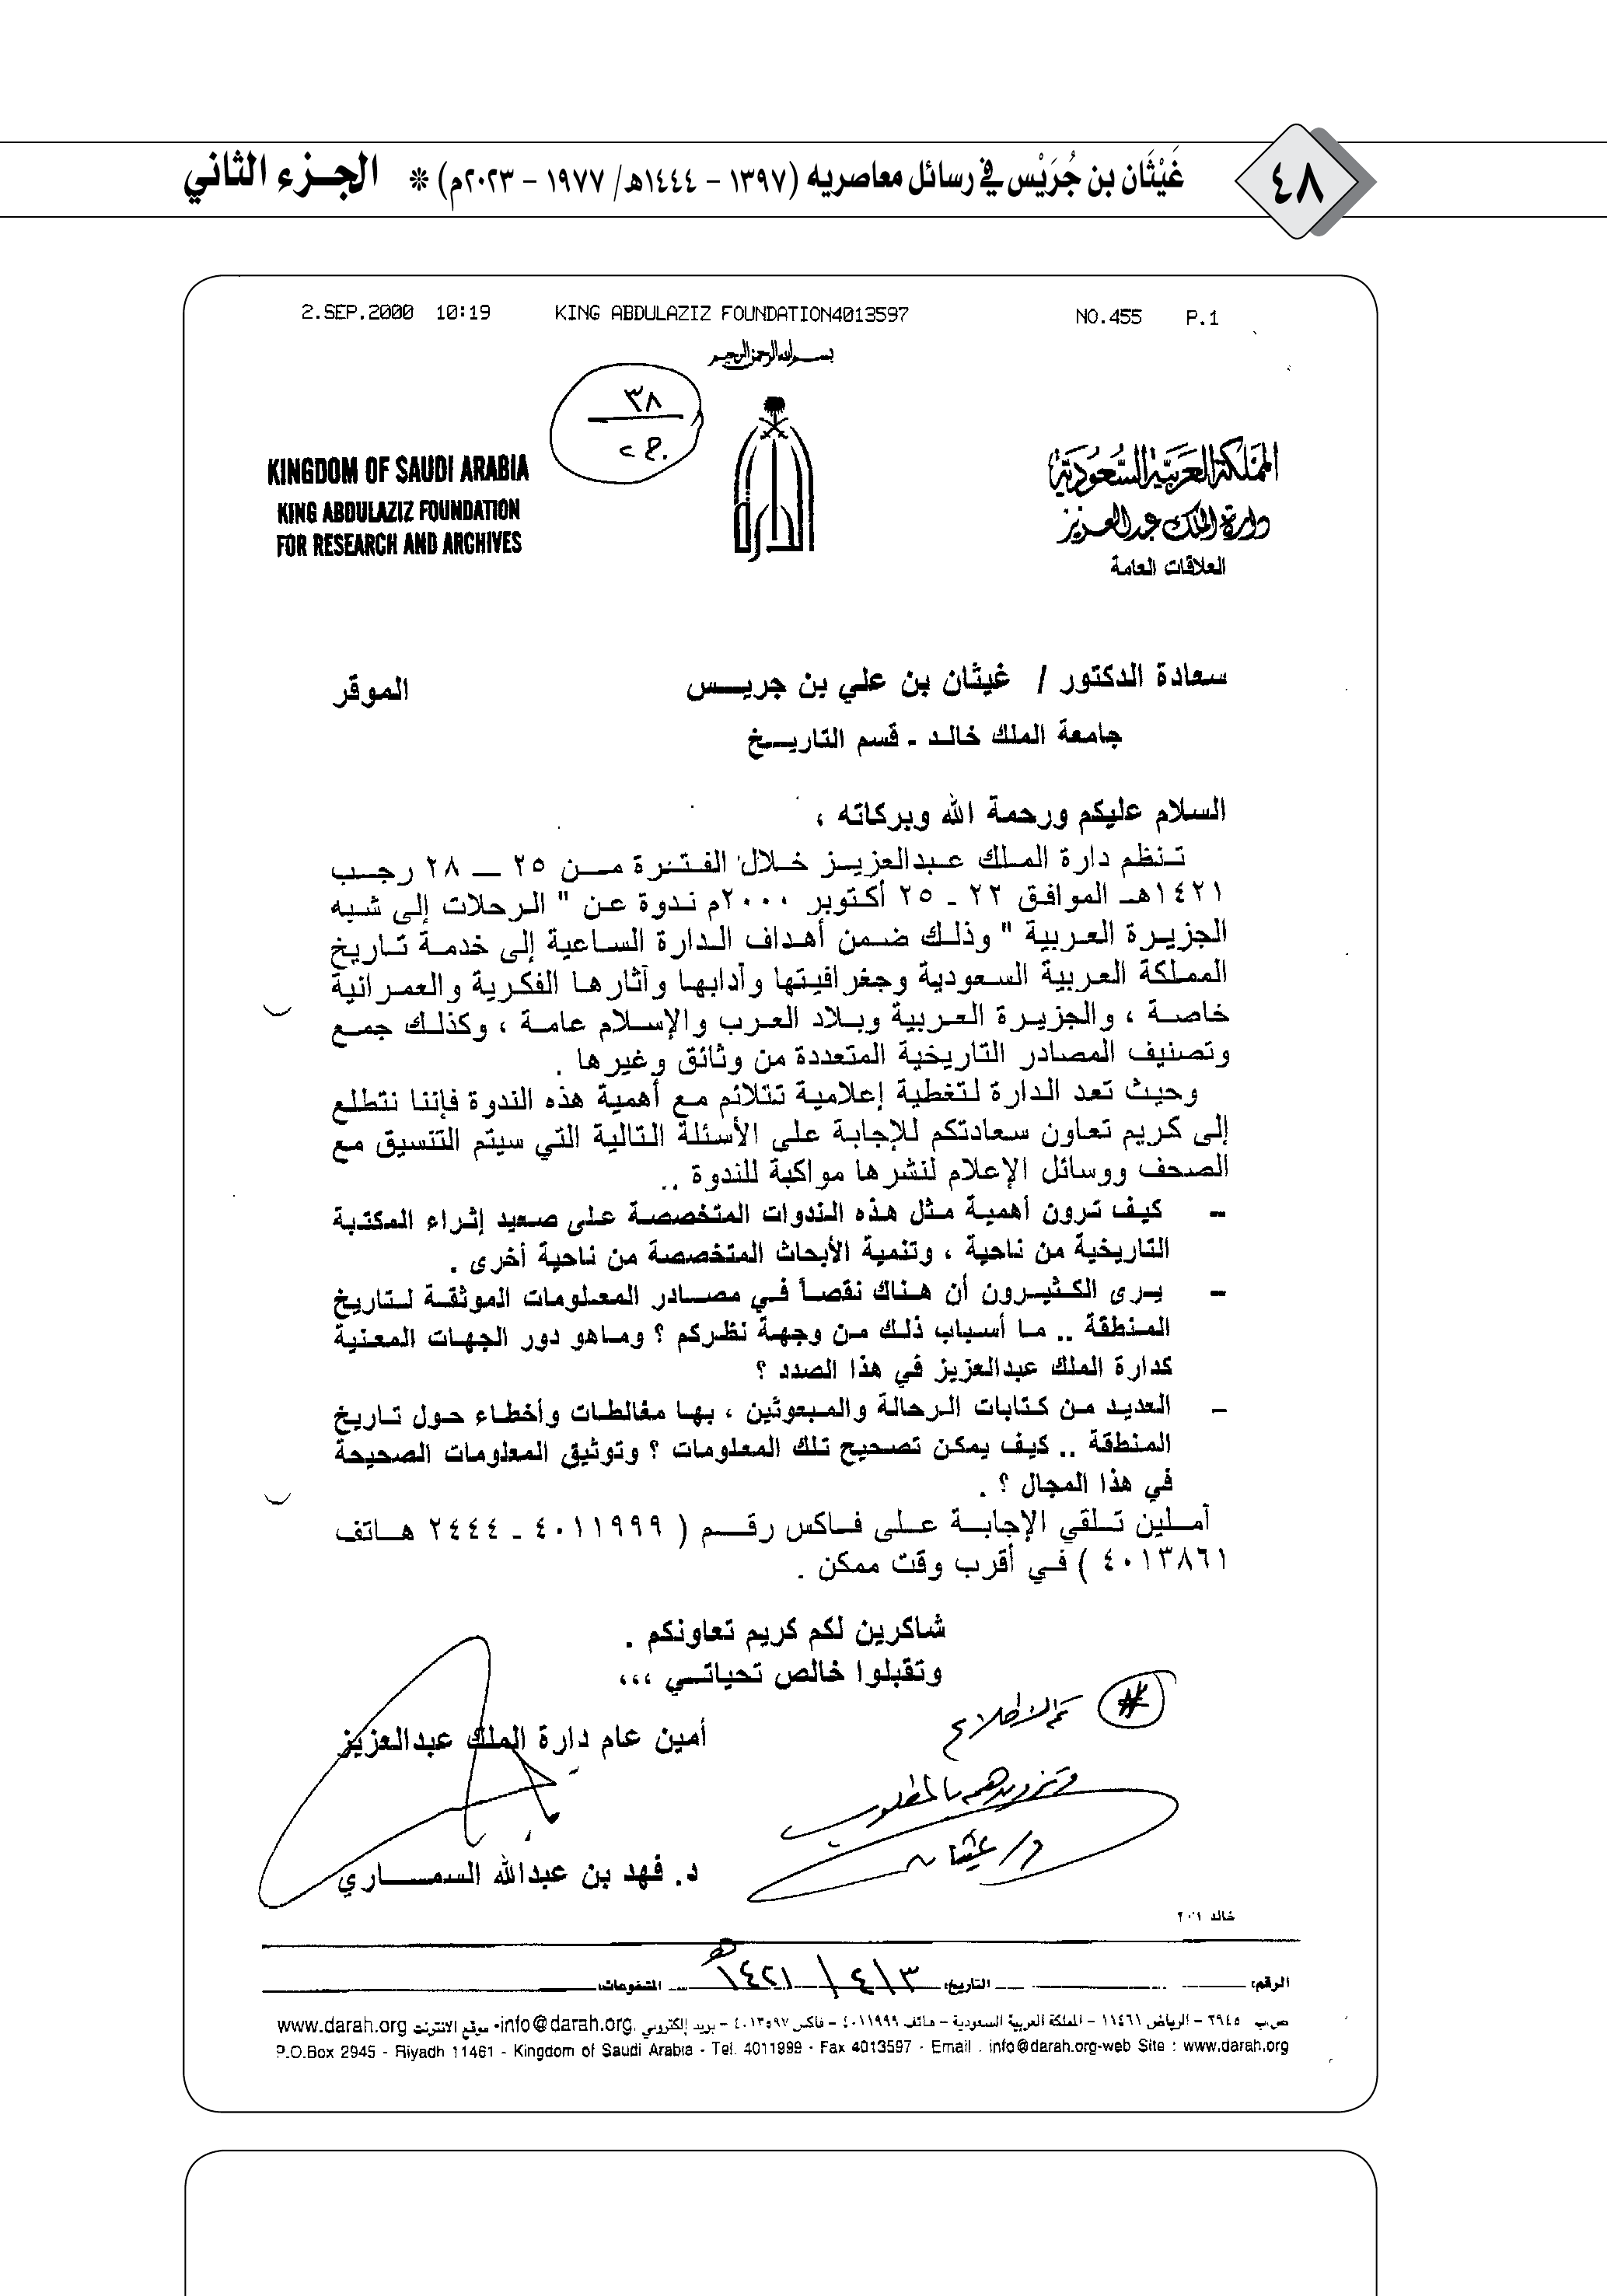 ٤٨
غَيْثَان بن جُرَيْس في رسائل معاصريه (١٣٩٧ - ١٤٤٤هـ/ ١٩٧٧ - ٢٠٢٣م) * الجزء الثاني
2.SEP.2000 10:19 KING ABDULAZIZ FOUNDATION4013597 NO.455 P.1
بسم الله الرحمن الرحيم
٣٨
المملكة العربية السعودية
دارة الملك عبدالعزيز
العلاقات العامة
الدارة
KINGDOM OF SAUDI ARABIA
KING ABDULAZIZ FOUNDATION
FOR RESEARCH AND ARCHIVES
سعادة الدكتور / غيثان بن علي بن جريس الموقر
جامعة الملك خالد - قسم التاريخ
السلام عليكم ورحمة الله وبركاته ،
تنظم دارة الملك عبدالعزيز خلال الفترة من ٢٥ – ٢٨ رجب
١٤٢١هـ الموافق ٢٢ - ٢٥ أكتوبر ٢٠٠٠م ندوة عن " الرحلات إلى شبه
الجزيرة العربية " وذلك ضمن أهداف الدارة الساعية إلى خدمة تاريخ
المملكة العربية السعودية وجغرافيتها وآدابها وآثارها الفكرية والعمرانية
خاصة ، والجزيرة العربية وبلاد العرب والإسلام عامة ، وكذلك جمع
وتصنيف المصادر التاريخية المتعددة من وثائق وغيرها .
وحيث تعد الدارة لتغطية إعلامية تتلائم مع أهمية هذه الندوة فإننا نتطلع
إلى كريم تعاون سعادتكم للإجابة على الأسئلة التالية التي سيتم التنسيق مع
الصحف ووسائل الإعلام لنشرها مواكبة للندوة ..
– كيف ترون أهمية مثل هذه الندوات المتخصصة على صعيد إثراء المكتبة
التاريخية من ناحية ، وتنمية الأبحاث المتخصصة من ناحية أخرى .
– يرى الكثيرون أن هناك نقصاً في مصادر المعلومات الموثقة لتاريخ
المنطقة .. ما أسباب ذلك من وجهة نظركم ؟ وماهو دور الجهات المعنية
كدارة الملك عبدالعزيز في هذا الصدد ؟
– العديد من كتابات الرحالة والمبعوثين ، بها مغالطات وأخطاء حول تاريخ
المنطقة .. كيف يمكن تصحيح تلك المعلومات ؟ وتوثيق المعلومات الصحيحة
في هذا المجال ؟ .
أملين تلقي الإجابة على فاكس رقم ( ٤٠١١٩٩٩ - ٢٤٤٤ هاتف
٤٠١٣٨٦١ ) في أقرب وقت ممكن .
شاكرين لكم كريم تعاونكم .
وتقبلوا خالص تحياتي ،،،
تم الاطلاع
وتزويدهم بالمطلوب
د/ غيثان
أمين عام دارة الملك عبدالعزيز
د. فهد بن عبدالله السمـاري
خالد ٢٠٦
الرقم: التاريخ: ٣/ ٤/ ١٤٢١هـ المشفوعات:
ص.ب ٢٩٤٥ - الرياض ١١٤٦١ - المملكة العربية السعودية - هاتف ٤٠١١٩٩٩ - فاكس ٤٠١٣٥٩٧ - بريد إلكتروني .info@darah.org- موقع الانترنت www.darah.org
P.O.Box 2945 - Riyadh 11461 - Kingdom of Saudi Arabia - Tel. 4011999 - Fax 4013597 - Email . info@darah.org-web Site : www.darah.org